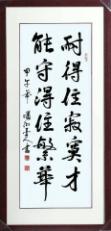 耐得住寂寞才
能守得住繁华
甲午年